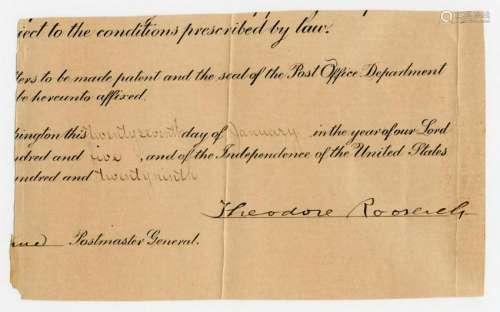 ject to the conditions prescribed by law.
ters to be made patent and the seal of the Post Office Department
be hereunto affixed.
hington this twenty seventh day of January in the year of our Lord
ndred and five, and of the Independence of the United States
undred and twenty ninth
Theodore Roosevelt
Postmaster General.